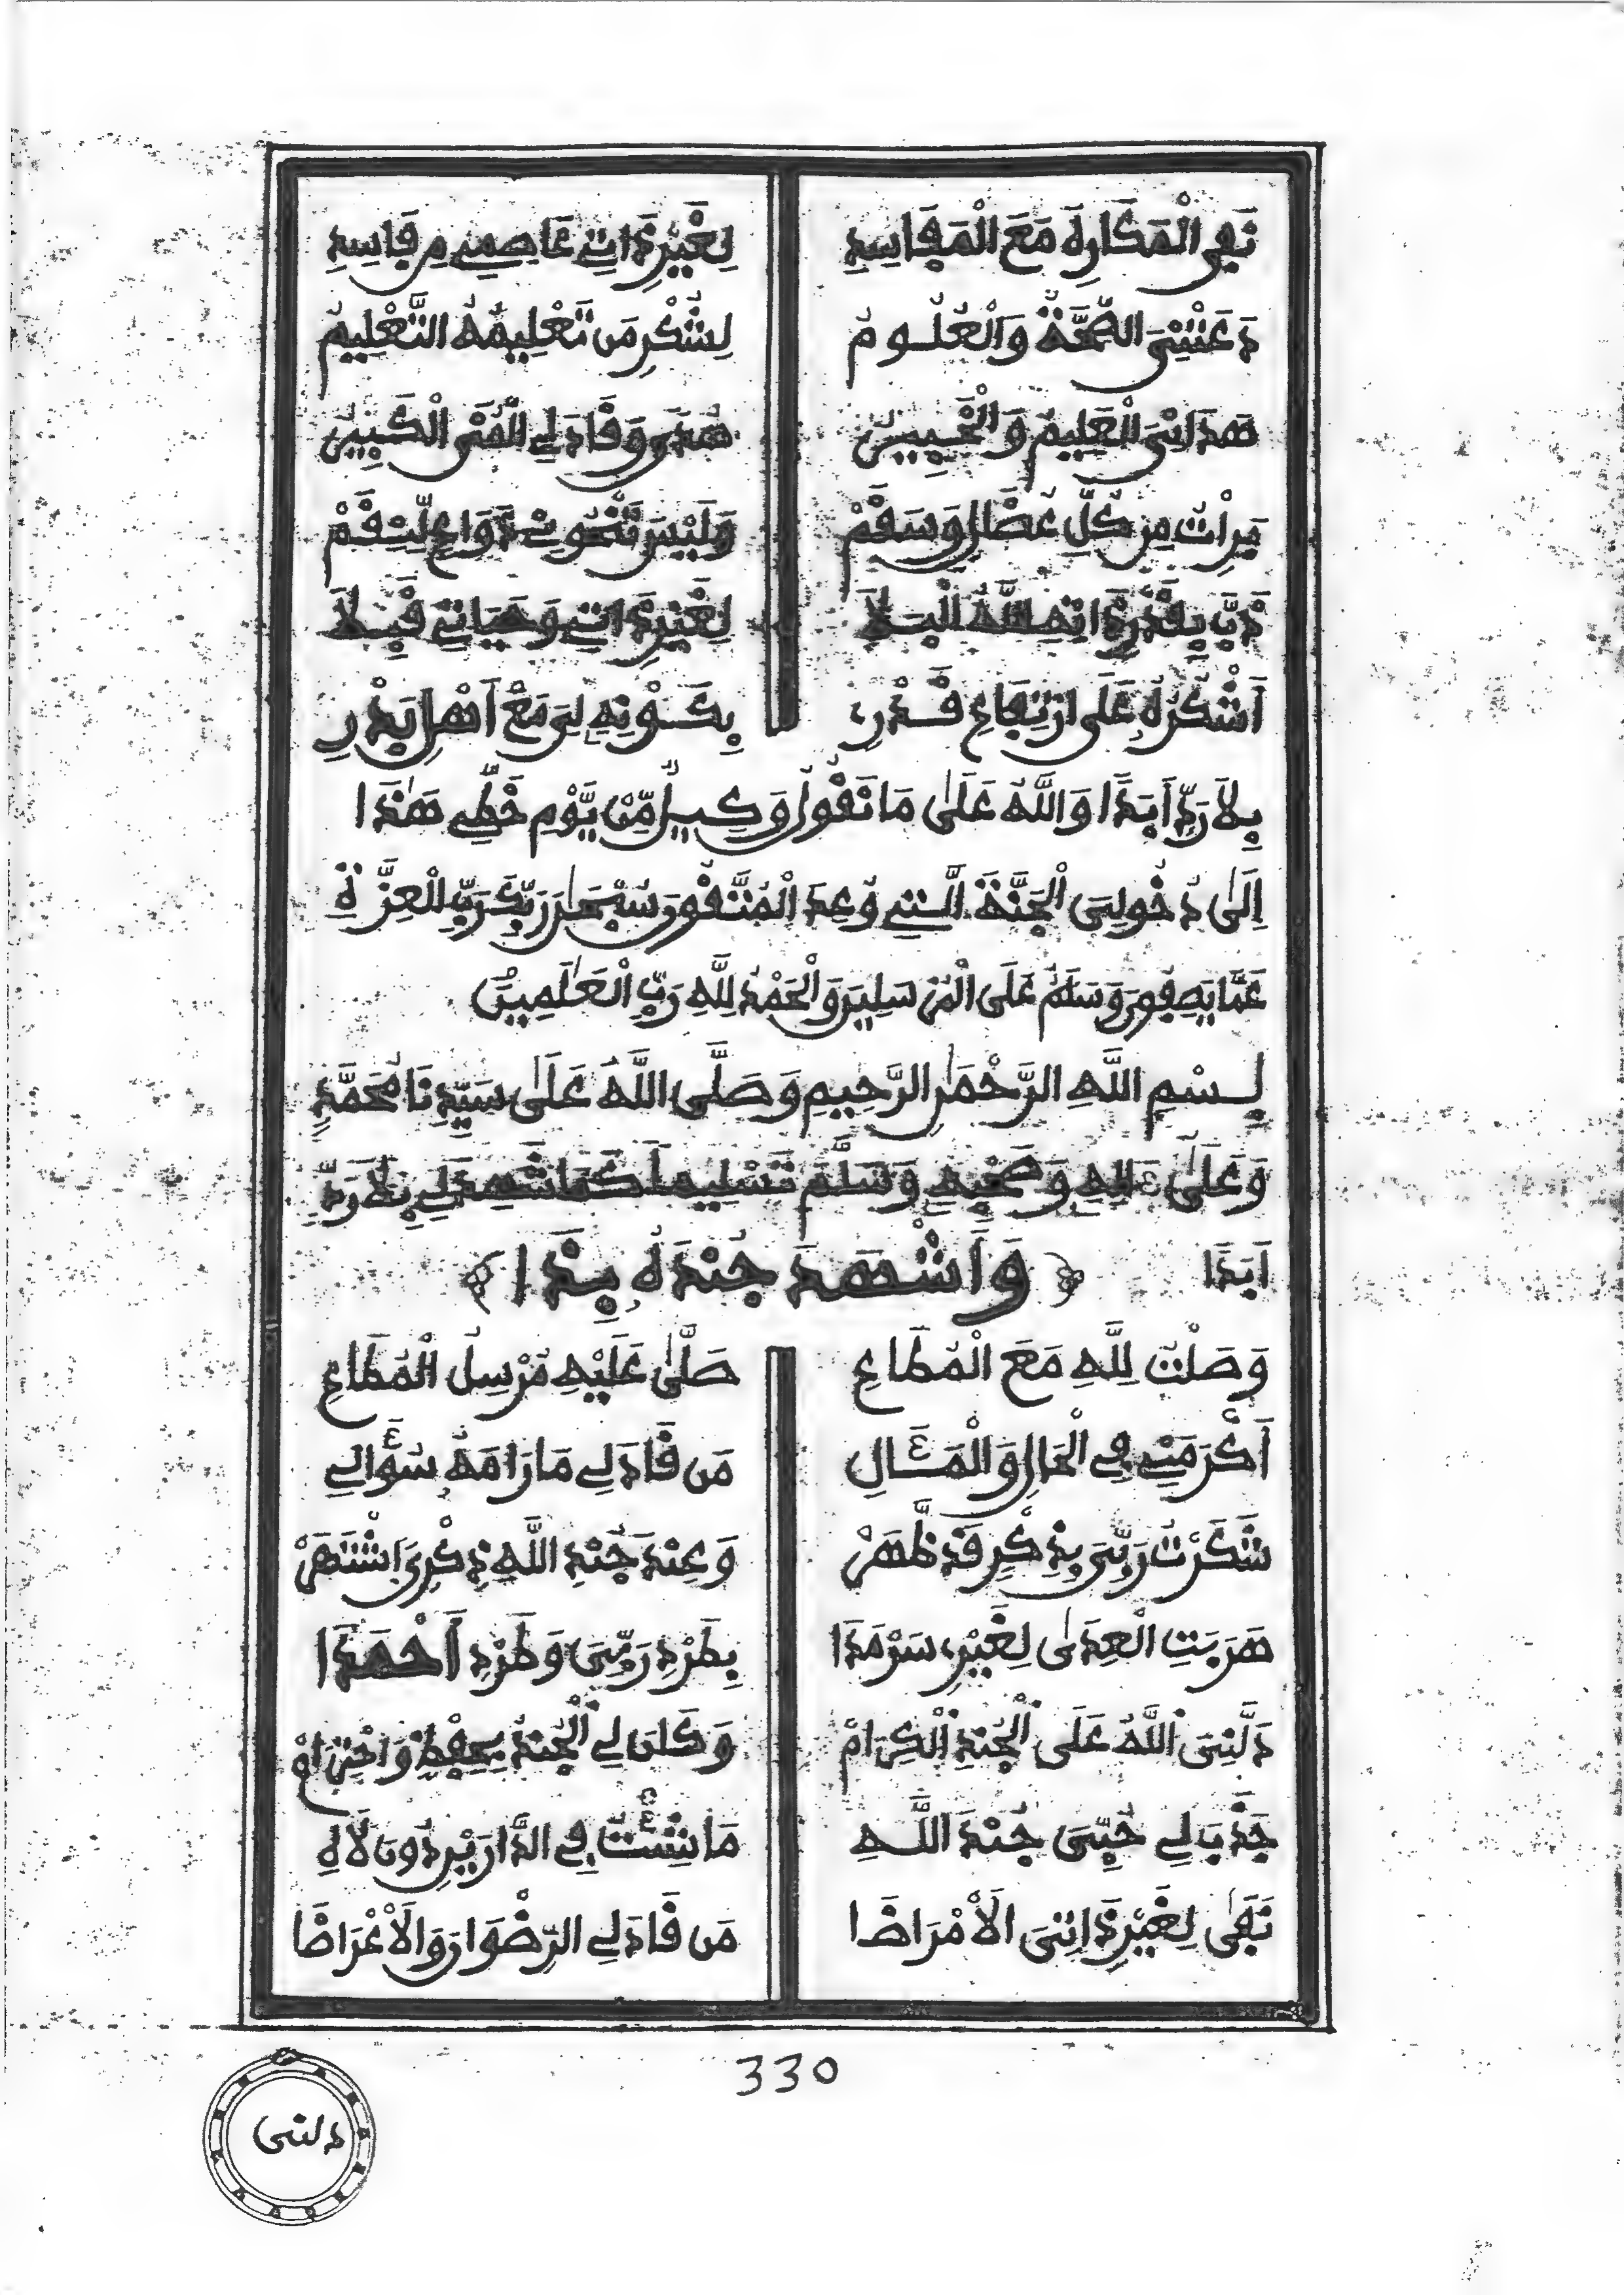 نَفَى الْمَكَارِهَ مَعَ الْمَفَاسِدِ لِغَيْرِ ذَاتِي عَاصِمِي مِن فَاسِدِ
دَعَتْنِيَ الصِّحَّةُ وَالْعُلُومُ لِشُكْرِ مَن تَعْلِيمُهُ التَّعْلِيمُ
هَدَانِيَ الْعَلِيمُ وَالْخَبِيرُ هُدًى وَقَادَ لِي الْمُنَى الْكَبِيرُ
بَرِأْتُ مِن كُلِّ عُضَالٍ وَسَقَمْ وَلَيْسَ تَنْحُونِي دَوَاعٍ لِنِقَمْ
ذَبَّ بِقَدْرِ ذَاتِهِ اللَّهُ الْبَلَا لِغَيْرِ ذَاتِي وَحَيَاتِي قَبِلَا
أَشْكُرُهُ عَلَى ارْتِفَاعِ قَدْرِي بِكَوْنِهِ لِيَ مَعْ أَهْلِ بَدْرِ
بِلَا رَدٍّ أَبَدًا وَاللَّهُ عَلَىٰ مَا نَقُولُ وَكِيلٌ مِّنْ يَّوْمِ خَطِّي هَٰذَا
إِلَىٰ دُخُولِيَ الْجَنَّةَ الَّتِي وُعِدَ الْمُتَّقُونَ سُبْحَٰنَ رَبِّكَ رَبِّ الْعِزَّةِ
عَمَّا يَصِفُونَ وَسَلَٰمٌ عَلَى الْمُرْسَلِينَ وَالْحَمْدُ لِلَّهِ رَبِّ الْعَٰلَمِينَ
بِسْمِ اللَّهِ الرَّحْمَٰنِ الرَّحِيمِ وَصَلَّى اللَّهُ عَلَىٰ سَيِّدِنَا مُحَمَّدٍ
وَعَلَىٰ ءَالِهِ وَصَحْبِهِ وَسَلَّمَ تَسْلِيمًا كَمَا شَهِدَ لِي بِلَا رَدٍّ
أَبَدًا ﴿وَأَشْهَدَ جُنْدَهُ بِذَا﴾
وَصَلْتُ لِلَّهِ مَعَ الْمُطَاعِ صَلَّىٰ عَلَيْهِ مُرْسِلُ الْمُطَاعِ
أَكْرَمَنِي فِي الْحَالِ وَالْمَئَالِ مَن قَادَ لِي مَا رَامَهُ سُؤَالِي
شَكَرْتُ رَبِّيَ بِذِكْرٍ قَدْ ظَهَرْ وَعِنْدَ جُنْدِ اللَّهِ ذِكْرِيَ اشْتَهَرْ
هَرَبَتِ الْعِدَىٰ لِغَيْرِي سَرْمَدَا بِطَرْدِ رَبِّيَ وَطَرْدِ أَحْمَدَا
دَلَّنِيَ اللَّهُ عَلَى الْجُنْدِ الْكِرَامْ وَكَانَ لِي الْجُنْدُ بِحِفْظٍ وَاحْتِرَامْ
جَذَبَ لِي حُبِّيَ جُنْدَ اللَّهِ مَا شِئْتُ فِي الدَّارَيْنِ دُونَ لَاهِ
نَفَىٰ لِغَيْرِ ذَاتِيَ الْأَمْرَاضَا مَن قَادَ لِي الرِّضْوَانَ وَالْأَغْرَاضَا
330
دلنى